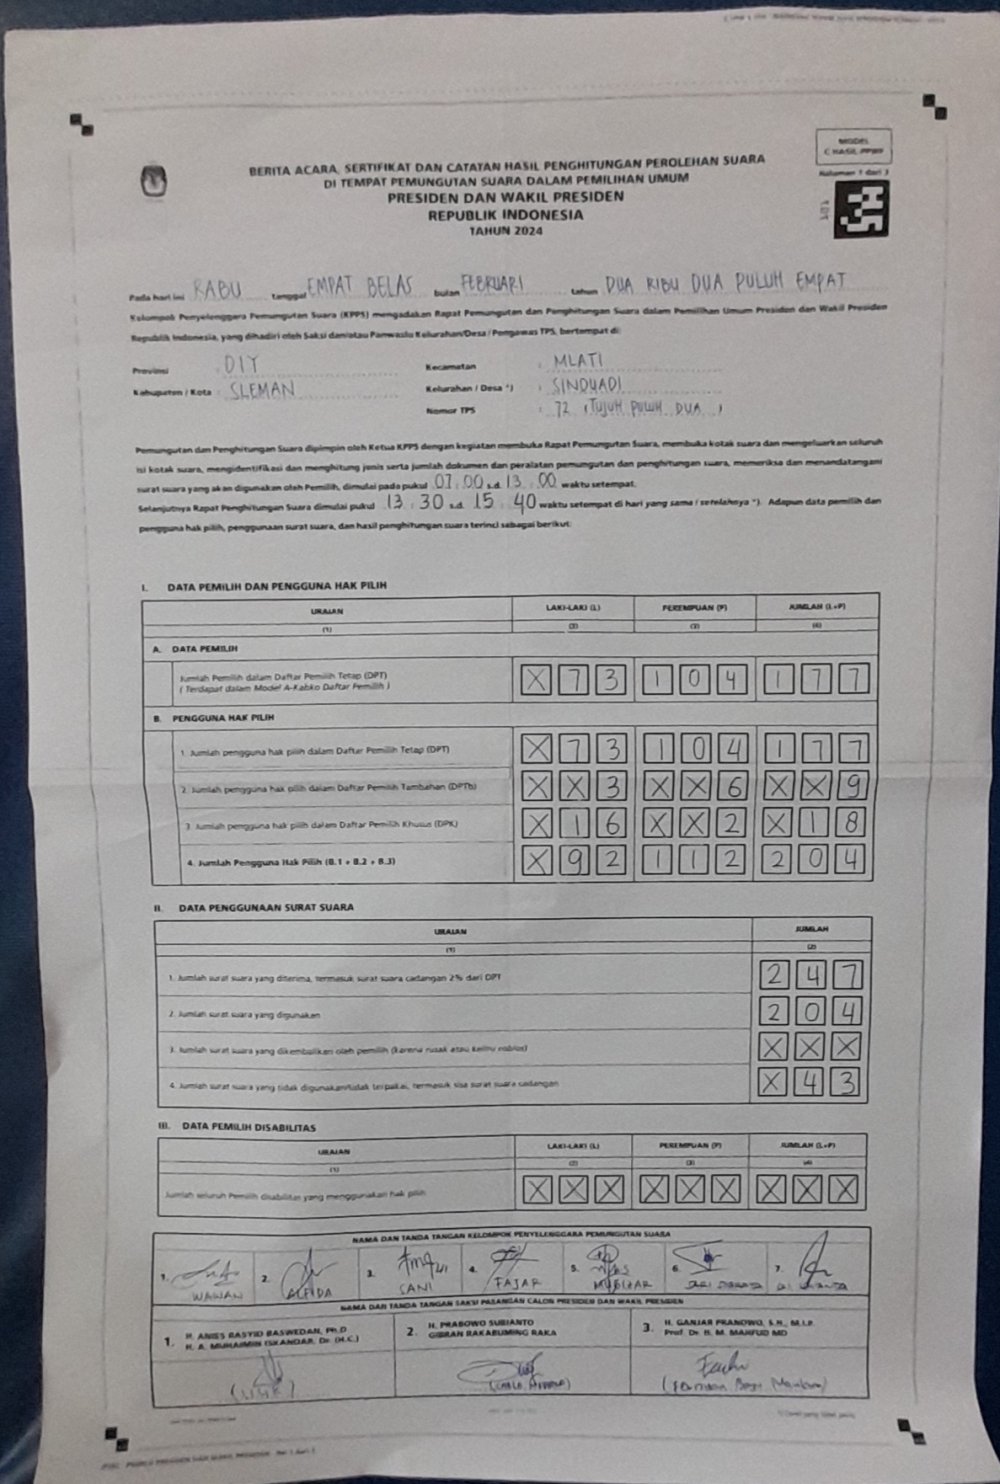 MODEL
C HASIL-PPWP
Halaman 1 dari 3
BERITA ACARA, SERTIFIKAT DAN CATATAN HASIL PENGHITUNGAN PEROLEHAN SUARA
DI TEMPAT PEMUNGUTAN SUARA DALAM PEMILIHAN UMUM
PRESIDEN DAN WAKIL PRESIDEN
REPUBLIK INDONESIA
TAHUN 2024
Pada hari ini RABU tanggal EMPAT BELAS bulan FEBRUARI tahun DUA RIBU DUA PULUH EMPAT
Kelompok Penyelenggara Pemungutan Suara (KPPS) mengadakan Rapat Pemungutan dan Penghitungan Suara dalam Pemilihan Umum Presiden dan Wakil Presiden
Republik Indonesia, yang dihadiri oleh Saksi dan/atau Panwaslu Kelurahan/Desa / Pengawas TPS, bertempat di:
Provinsi : DIY Kecamatan : MLATI
Kabupaten / Kota : SLEMAN Kelurahan / Desa *) : SINDUADI
Nomor TPS : 72 (TUJUH PULUH DUA)
Pemungutan dan Penghitungan Suara dipimpin oleh Ketua KPPS dengan kegiatan membuka Rapat Pemungutan Suara, membuka kotak suara dan mengeluarkan seluruh
isi kotak suara, mengidentifikasi dan menghitung jenis serta jumlah dokumen dan peralatan pemungutan dan penghitungan suara, memeriksa dan menandatangani
surat suara yang akan digunakan oleh Pemilih, dimulai pada pukul 07.00 s.d 13.00 waktu setempat.
Selanjutnya Rapat Penghitungan Suara dimulai pukul 13.30 s.d 15.40 waktu setempat di hari yang sama / setelahnya *). Adapun data pemilih dan
pengguna hak pilih, penggunaan surat suara, dan hasil penghitungan suara terinci sebagai berikut:
I. DATA PEMILIH DAN PENGGUNA HAK PILIH
URAIAN LAKI-LAKI (L) PEREMPUAN (P) JUMLAH (L+P)
(1) (2) (3) (4)
A. DATA PEMILIH
Jumlah Pemilih dalam Daftar Pemilih Tetap (DPT) X 7 3 1 0 4 1 7 7
( Terdapat dalam Model A-Kabko Daftar Pemilih )
B. PENGGUNA HAK PILIH
1. Jumlah pengguna hak pilih dalam Daftar Pemilih Tetap (DPT) X 7 3 1 0 4 1 7 7
2. Jumlah pengguna hak pilih dalam Daftar Pemilih Tambahan (DPTb) X X 3 X X 6 X X 9
3. Jumlah pengguna hak pilih dalam Daftar Pemilih Khusus (DPK) X 1 6 X X 2 X 1 8
4. Jumlah Pengguna Hak Pilih (B.1 + B.2 + B.3) X 9 2 1 1 2 2 0 4
II. DATA PENGGUNAAN SURAT SUARA
URAIAN JUMLAH
(1) (2)
1. Jumlah surat suara yang diterima, termasuk surat suara cadangan 2% dari DPT 2 4 7
2. Jumlah surat suara yang digunakan 2 0 4
3. Jumlah surat suara yang dikembalikan oleh pemilih (karena rusak atau keliru coblos) X X X
4. Jumlah surat suara yang tidak digunakan/tidak terpakai, termasuk sisa surat suara cadangan X 4 3
III. DATA PEMILIH DISABILITAS
URAIAN LAKI-LAKI (L) PEREMPUAN (P) JUMLAH (L+P)
(1) (2) (3) (4)
Jumlah seluruh Pemilih disabilitas yang menggunakan hak pilih X X X X X X X X X
NAMA DAN TANDA TANGAN KELOMPOK PENYELENGGARA PEMUNGUTAN SUARA
1. 2. 3. 4. 5. 6. 7.
WAWAN ALFIDA SANI FAJAR
NAMA DAN TANDA TANGAN SAKSI PASANGAN CALON PRESIDEN DAN WAKIL PRESIDEN
1. H. ANIES RASYID BASWEDAN, Ph.D
H. A. MUHAIMIN ISKANDAR, Dr. (H.C.)
2. H. PRABOWO SUBIANTO
GIBRAN RAKABUMING RAKA
3. H. GANJAR PRANOWO, S.H., M.I.P.
Prof. Dr. H. M. MAHFUD MD